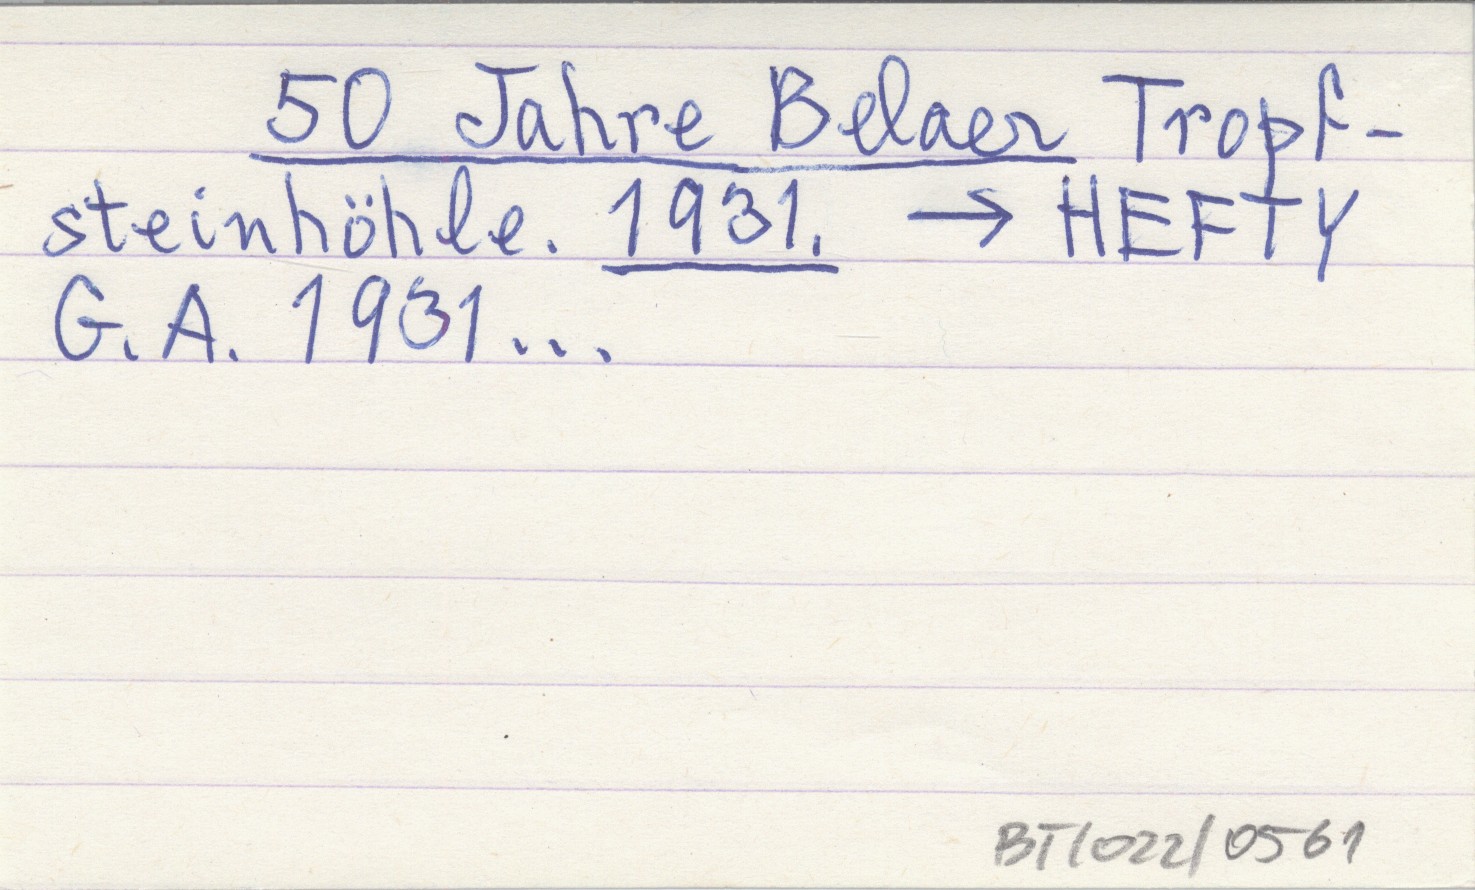 50 Jahre Belaer Tropf-
steinhöhle. 1931. → HEFTY
G. A. 1931...
BT/022/0561